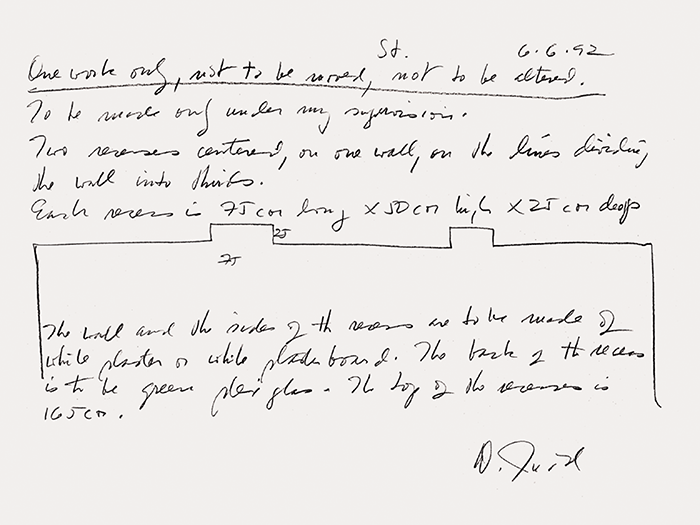 St. 6.6.92
One work only, not to be moved, not to be altered.
To be made only under my supervision.
Two recesses centered, on one wall, on the lines dividing
the wall into thirds.
Each recess is 75 cm long x 50 cm high x 25 cm deep
25
75
The wall and the sides of the recess are to be made of
white plaster or white plasterboard. The back of the recess
is to be green plexiglas. The top of the recesses is
165 cm.
D. Judd